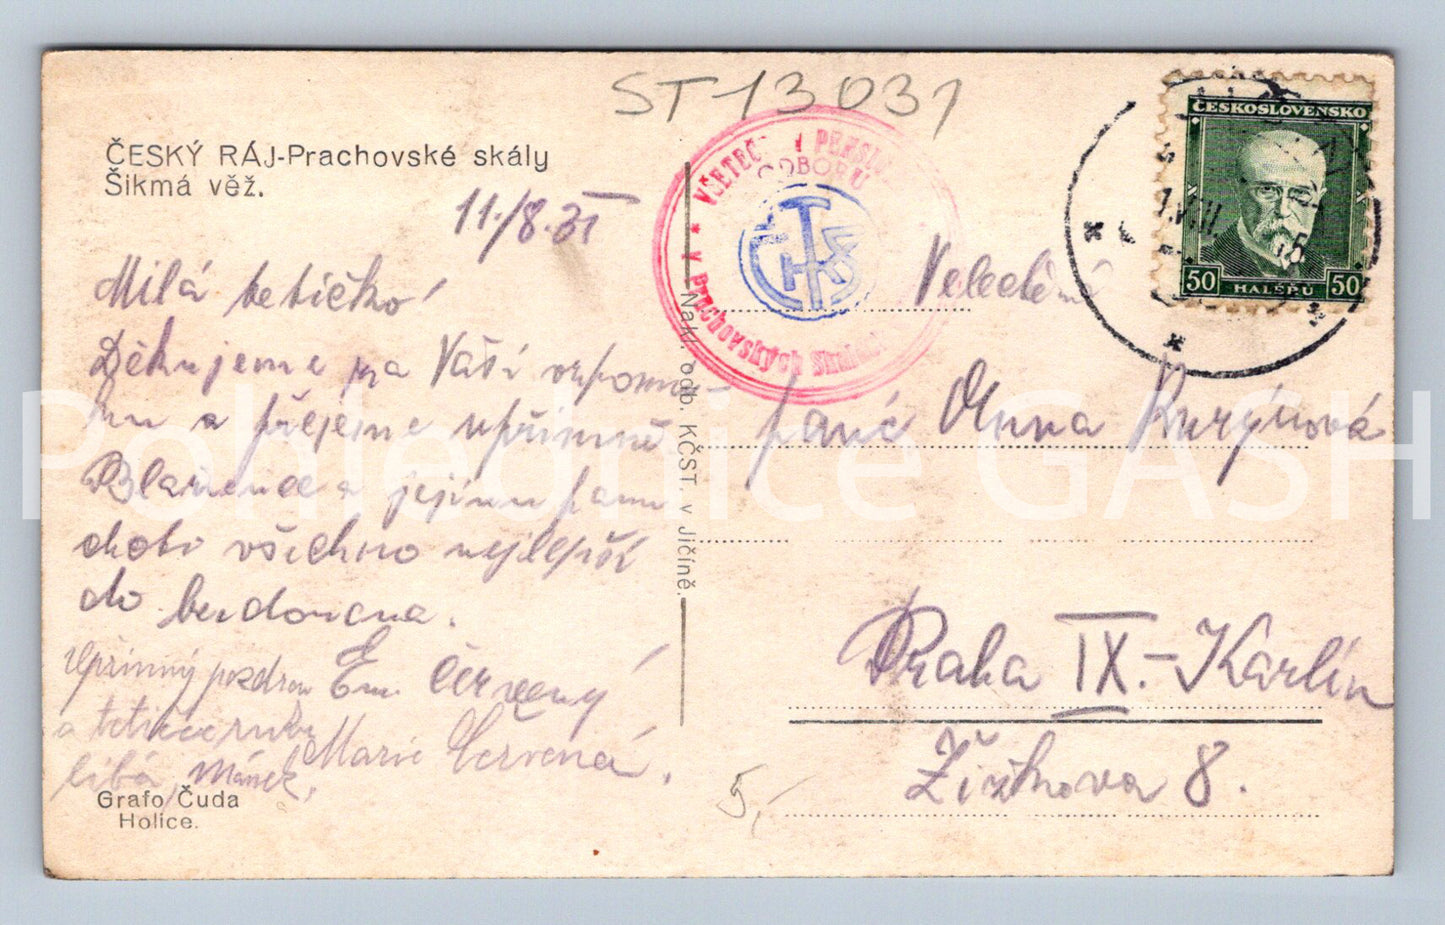 ST 13031
ČESKÝ RÁJ-Prachovské skály
Šikmá věž.
11./8.35
Milá tetičko!
Děkujeme za Vaši vzpomín-
ku a přejeme upřímně
Blažence a jejímu panu
choti všechno nejlepší
do budoucna.
Em. Červený
Upřímný pozdrav
a tetičce ruku
líbá, Mánek,
Marie Červená.
Grafo Čuda
Holice.
Nakl. odb. KČST. v Jičíně.
VŠETEČ PENSI
ODBORU
KČST
* V Prachovských Skalách
ČESKOSLOVENSKO
50 HALÉŘŮ 50
Velectěná
paní Anna Kurýnová
Praha IX.-Karlín
Žižkova 8.
5,-
Pohlednice GASH